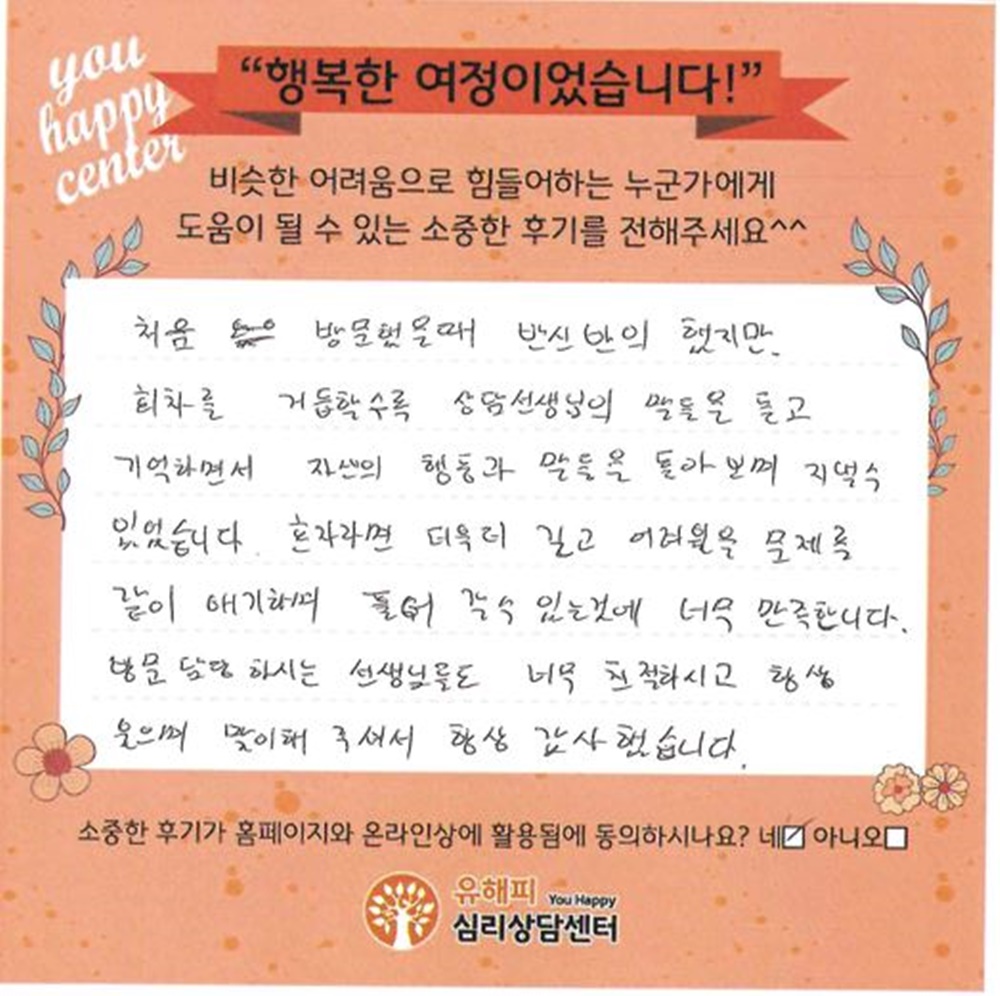 you
happy
center
“행복한 여정이었습니다!”
비슷한 어려움으로 힘들어하는 누군가에게
도움이 될 수 있는 소중한 후기를 전해주세요^^
처음 방문했을때 반신반의 했지만.
회차를 거듭할수록 상담선생님의 말들을 듣고
기억하면서 자신의 행동과 말들을 돌아보며 지낼수
있었습니다. 혼자라면 더욱더 길고 어려웠을 문제를
같이 얘기하며 풀어 갈수 있는것에 너무 만족합니다.
방문 담당 하시는 선생님들도 너무 친절하시고 항상
웃으며 맞이해 주셔서 항상 감사했습니다.
소중한 후기가 홈페이지와 온라인상에 활용됨에 동의하시나요? 네☑ 아니오☐
유해피 You Happy
심리상담센터